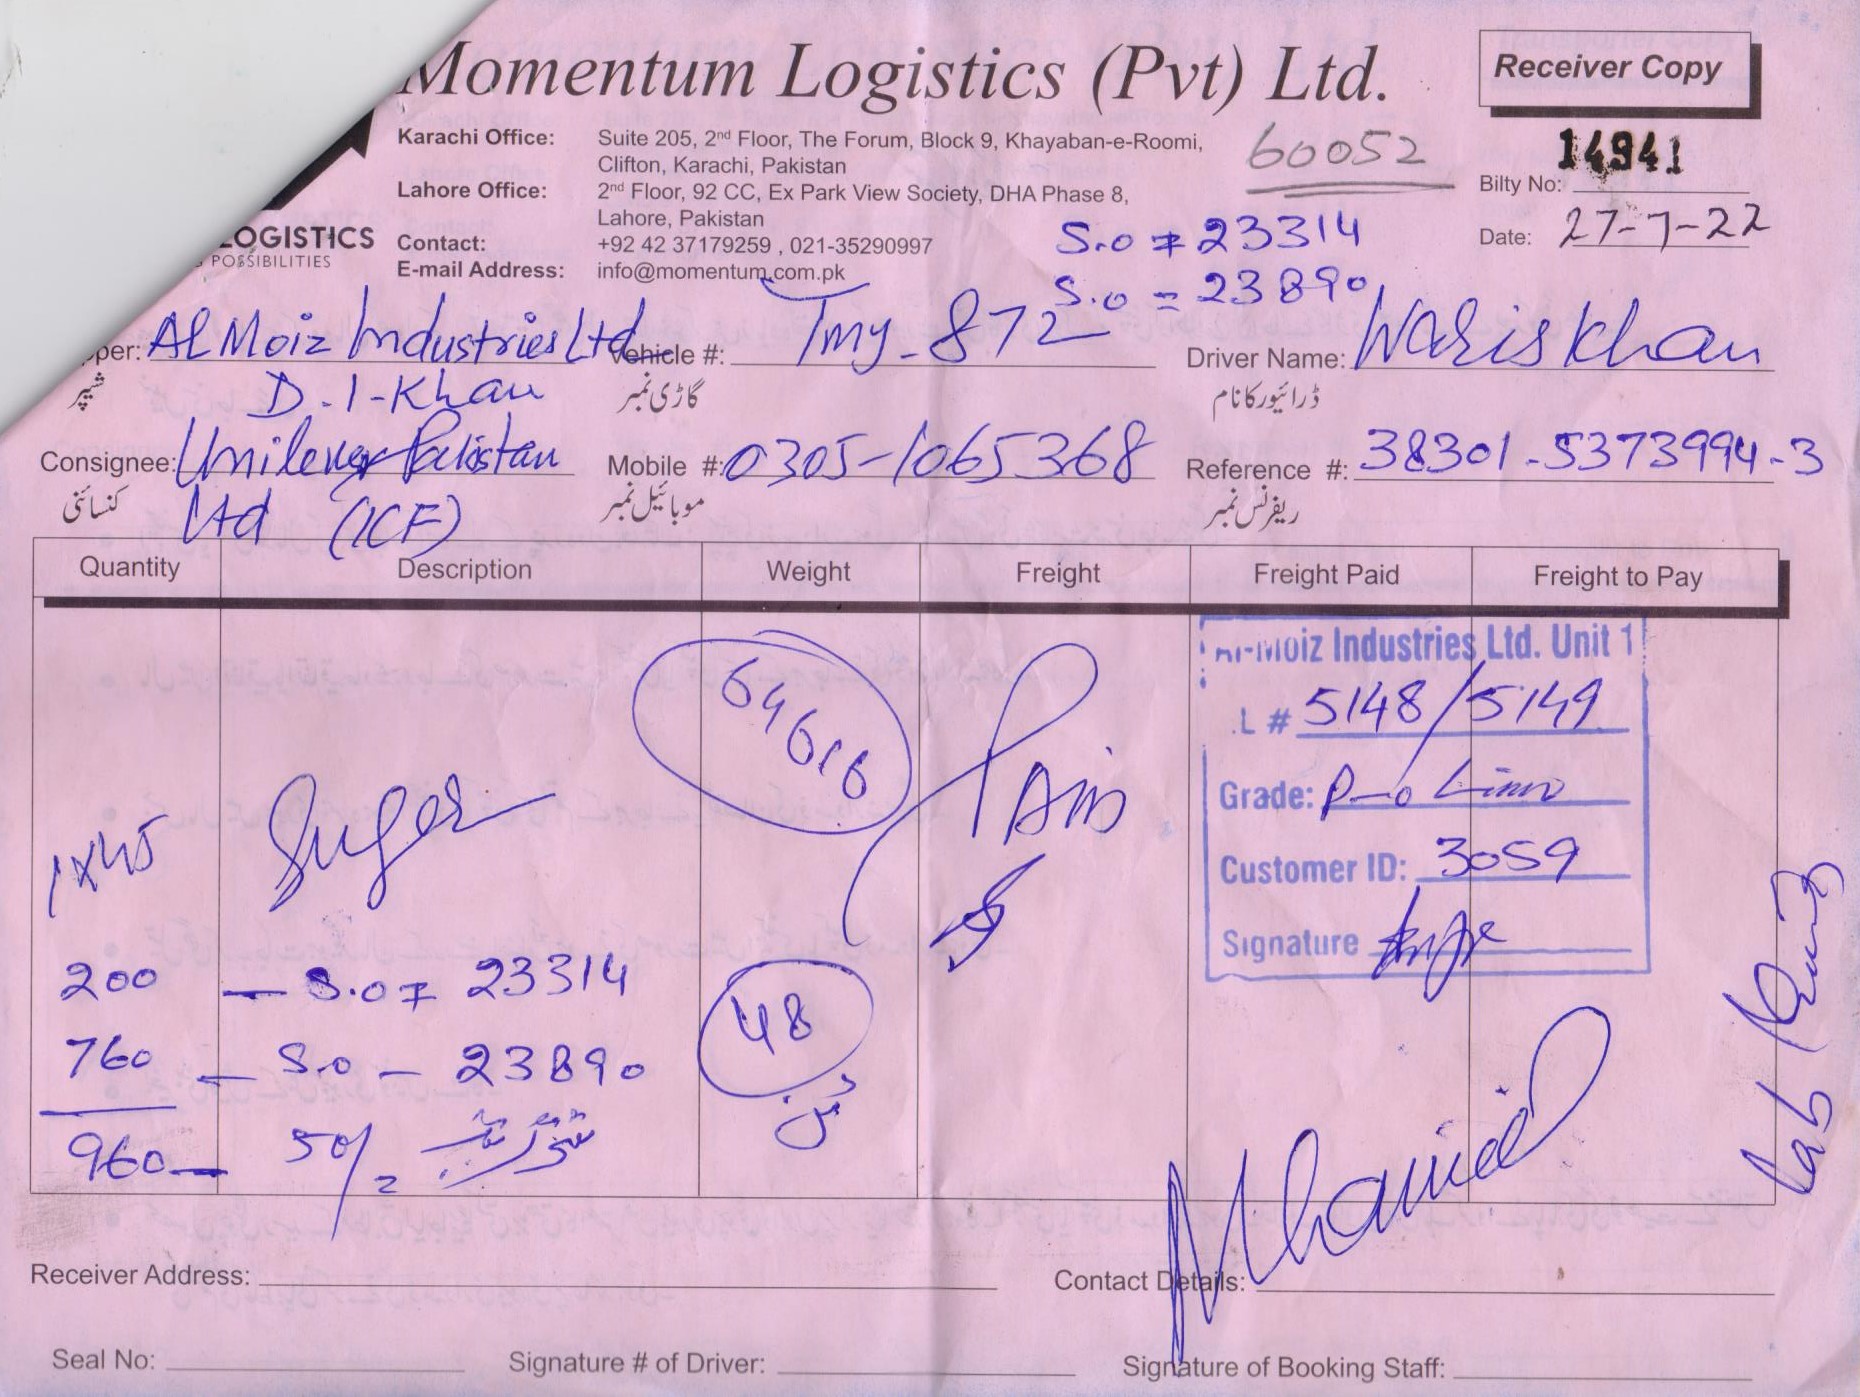 Momentum Logistics (Pvt) Ltd.
Receiver Copy
LOGISTICS
POSSIBILITIES
Karachi Office: Suite 205, 2nd Floor, The Forum, Block 9, Khayaban-e-Roomi,
Clifton, Karachi, Pakistan
Lahore Office: 2nd Floor, 92 CC, Ex Park View Society, DHA Phase 8,
Lahore, Pakistan
Contact: +92 42 37179259 , 021-35290997
E-mail Address: info@momentum.com.pk
60052
Bilty No: 14941
Date: 27-7-22
S.o = 23314
S.o = 23890
per: Al Moiz Industries Ltd Vehicle #: Tmy-872 Driver Name: Waris Khan
D.I-Khan
شیپر گاڑی نمبر ڈرائیور کا نام
Consignee: Unilever Pakistan Mobile #: 0305-1065368 Reference #: 38301-5373994-3
Ltd (ICF)
کنسائنی موبائیل نمبر ریفرنس نمبر
Quantity Description Weight Freight Freight Paid Freight to Pay
64616
1x45 Suger
200 — S.o = 23314
760 — S.o — 23890
960 — 50/2
48
ٹن
Al-Moiz Industries Ltd. Unit 1
.L # 5148/5149
Grade:
Customer ID: 3059
Signature
Receiver Address: Contact Details:
Seal No: Signature # of Driver: Signature of Booking Staff: